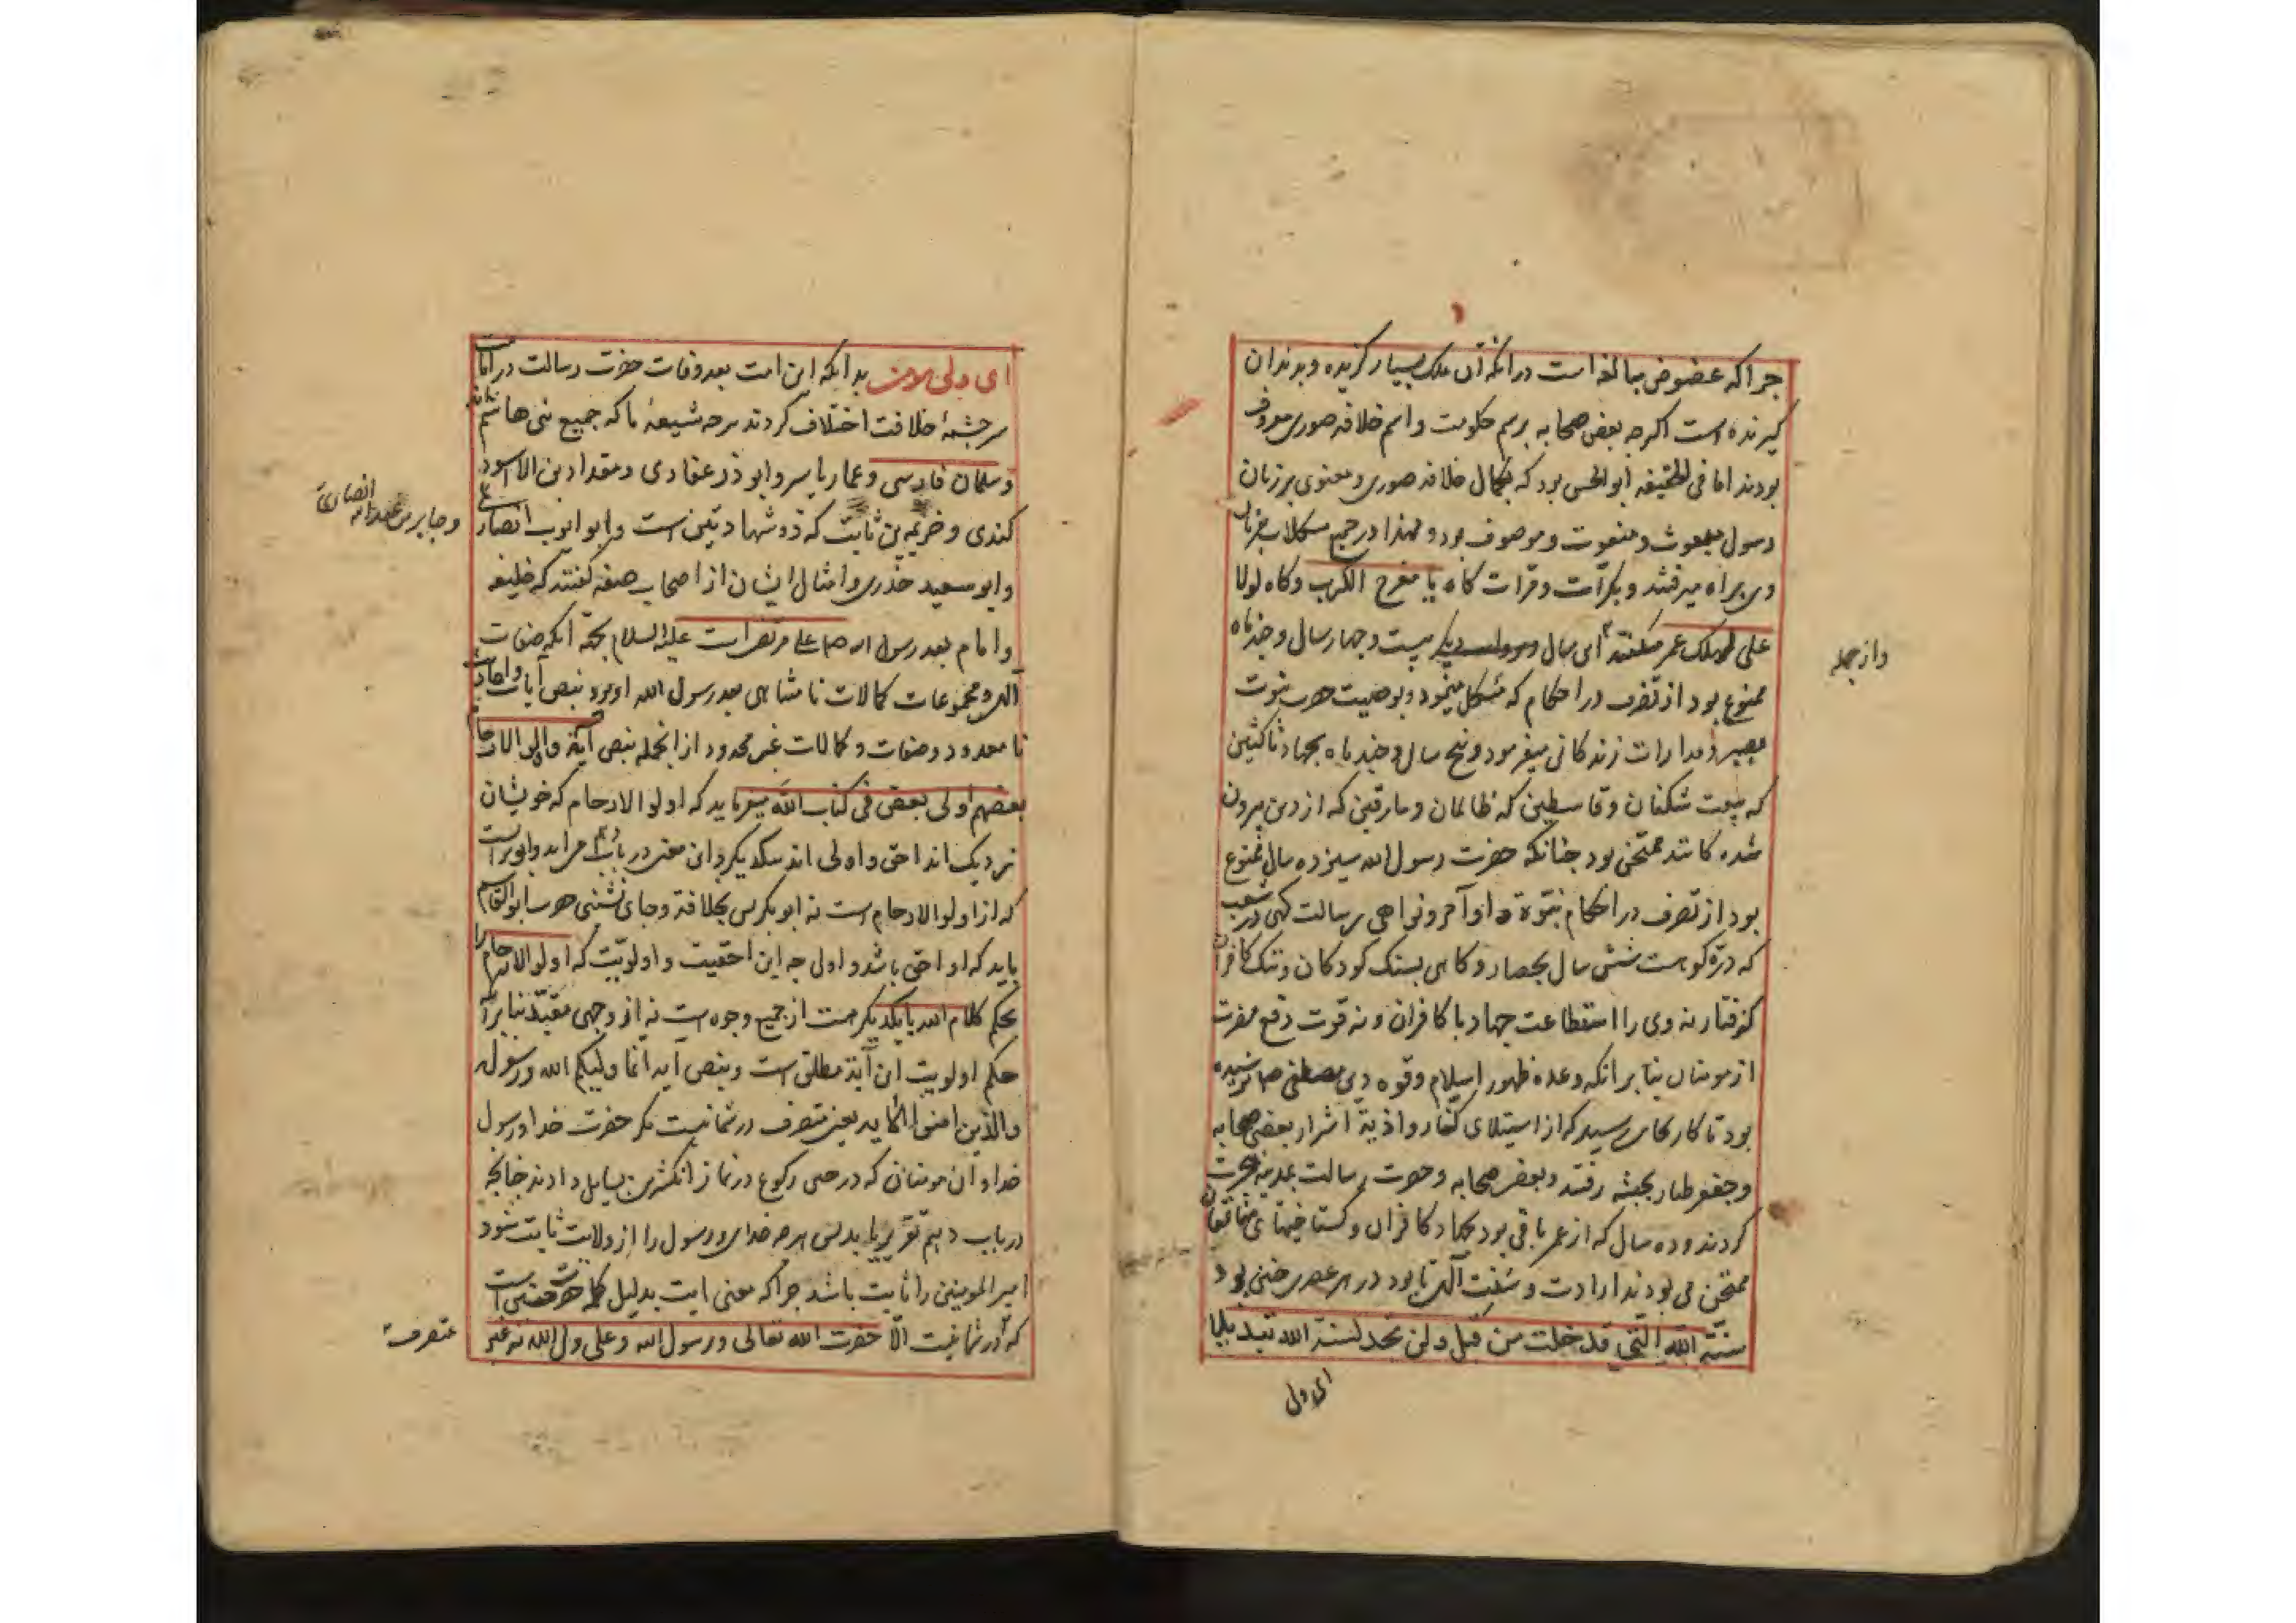 جرا که عضوض مبالغه است در انکه آن ملک بسیار کزیده و بدندان
کیرنده است اکرجه بعض صحابه برسم حکومت و اسم خلافة صوری معروف
بودند اما فی الحقیقه ابو الحسن بود که بکمال خلافة صوری و معنوی بر زبان
رسول مبعوث و منعوت و موصوف بود و لهذا در جمیع مشکلات
وی براه میرفتند و بکرّات و مرّات کاه یا مفرج الکرب و کاه لولا
علی لهلک عمر میکفتند ای سال بیست و جهار سال و جند ماه
وازجمله
ممنوع بود از تصرف در احکام که مشکل مینمود و بوصیت حضرت نبوت
بصبر و مدارات زندکانی میفرمود و پنج سال و جند ماه بجهاد ناکثین
که بیعت شکنان و قاسطین که ظالمان و مارقین که از دین بیرون
شده کانند ممتحن بود جنانکه حضرت رسول الله سیزده سال ممنوع
بود از تصرف در احکام نبوّة و اوآمر و نواهی رسالت کهی در شعب
که درّه کوه است شش سال بحصار و کاهی بسنک کودکان و ننک کافران
کرفتار نه وی را استطاعت جهاد با کافران و نه قوت دفع مضرت
از مومنان بنا بر انکه وعده ظهور اسلام و قوه دین مصطفی صم نرسیده
بود تا کار بجای رسید که از استیلای کفار و اذیة اشرار بعضی صحابه
و جعفر طیار بحبشه رفتند و بعضی صحابه و حضرت رسالت بمدینه هجرت
کردند و ده سال که از عمر باقی بود بجهاد کافران و کستاخیهای منافقان
ممتحن می بودند ارادت و سنّت آلهی تا بود در هر عصری جنین بود
سنّة الله الّتی قد خلت من قبل و لن تجد لسنة الله تبدیلا
ای ولی
ای ولی بدانکه این امت بعد وفات حضرت رسالت در امامت
سرجشمهٔ خلافت اختلاف کردند شیعهٔ ما که جمیع بنی هاشم
و سلمان فارسی و عمار یاسر و ابو ذر غفاری و مقداد بن الاسود
کندی و خزیمه بن ثابت که ذو شهادتین است و ابو ایوب انصاری
و جابر بن عبدالله انصاری
و ابو سعید خدری و امثال ایشان از اصحاب صفه کفتند که خلیفه
و امام بعد رسول الله صم علی مرتضی است علیه السلام بحجّة آنکه صفات
آلهی و مجموعات کمالات نامتناهی بعد رسول الله او بود بنص آیات و احادیث
نامعدود و صفات و کمالات غیر محدود از انجمله بنص آیة و اولوا الارحام
بعضهم اولی ببعض فی کتاب الله میفرماید که اولوا الارحام که خویشان
نزدیک اند احق و اولی اند بیکدیکر و این معنی در باب
که از اولوا الارحام است نه ابو بکر پس بخلافة و جای نشینی حضرت ابو القاسم
باید که او احق باشد و اولی جه این احقیت و اولویّت که اولوا الارحام را
بحکم کلام الله با یکدیکر هست از جمیع وجوه است نه از وجهی مقیّد بنا بر آن
حکم اولویت این آیة مطلق است و بنص آیه انّما ولیکم الله و رسوله
والذین امنوا الآیه یعنی متصرف در شما نیست مکر حضرت خدا و رسول
خدا و آن مومنان که در حین رکوع در نماز انکشترین بسایل دادند جنانجه
در باب دهم تقریر یابد پس هر جه خدای و رسول را از ولایت ثابت شود
امیر المومنین را ثابت باشد جرا که معنی ایت بدلیل کلمه حصر جنین است
که در شما نیست الّا حضرت الله تعالی و رسول الله و علی ولی الله نه غیر
متصرف